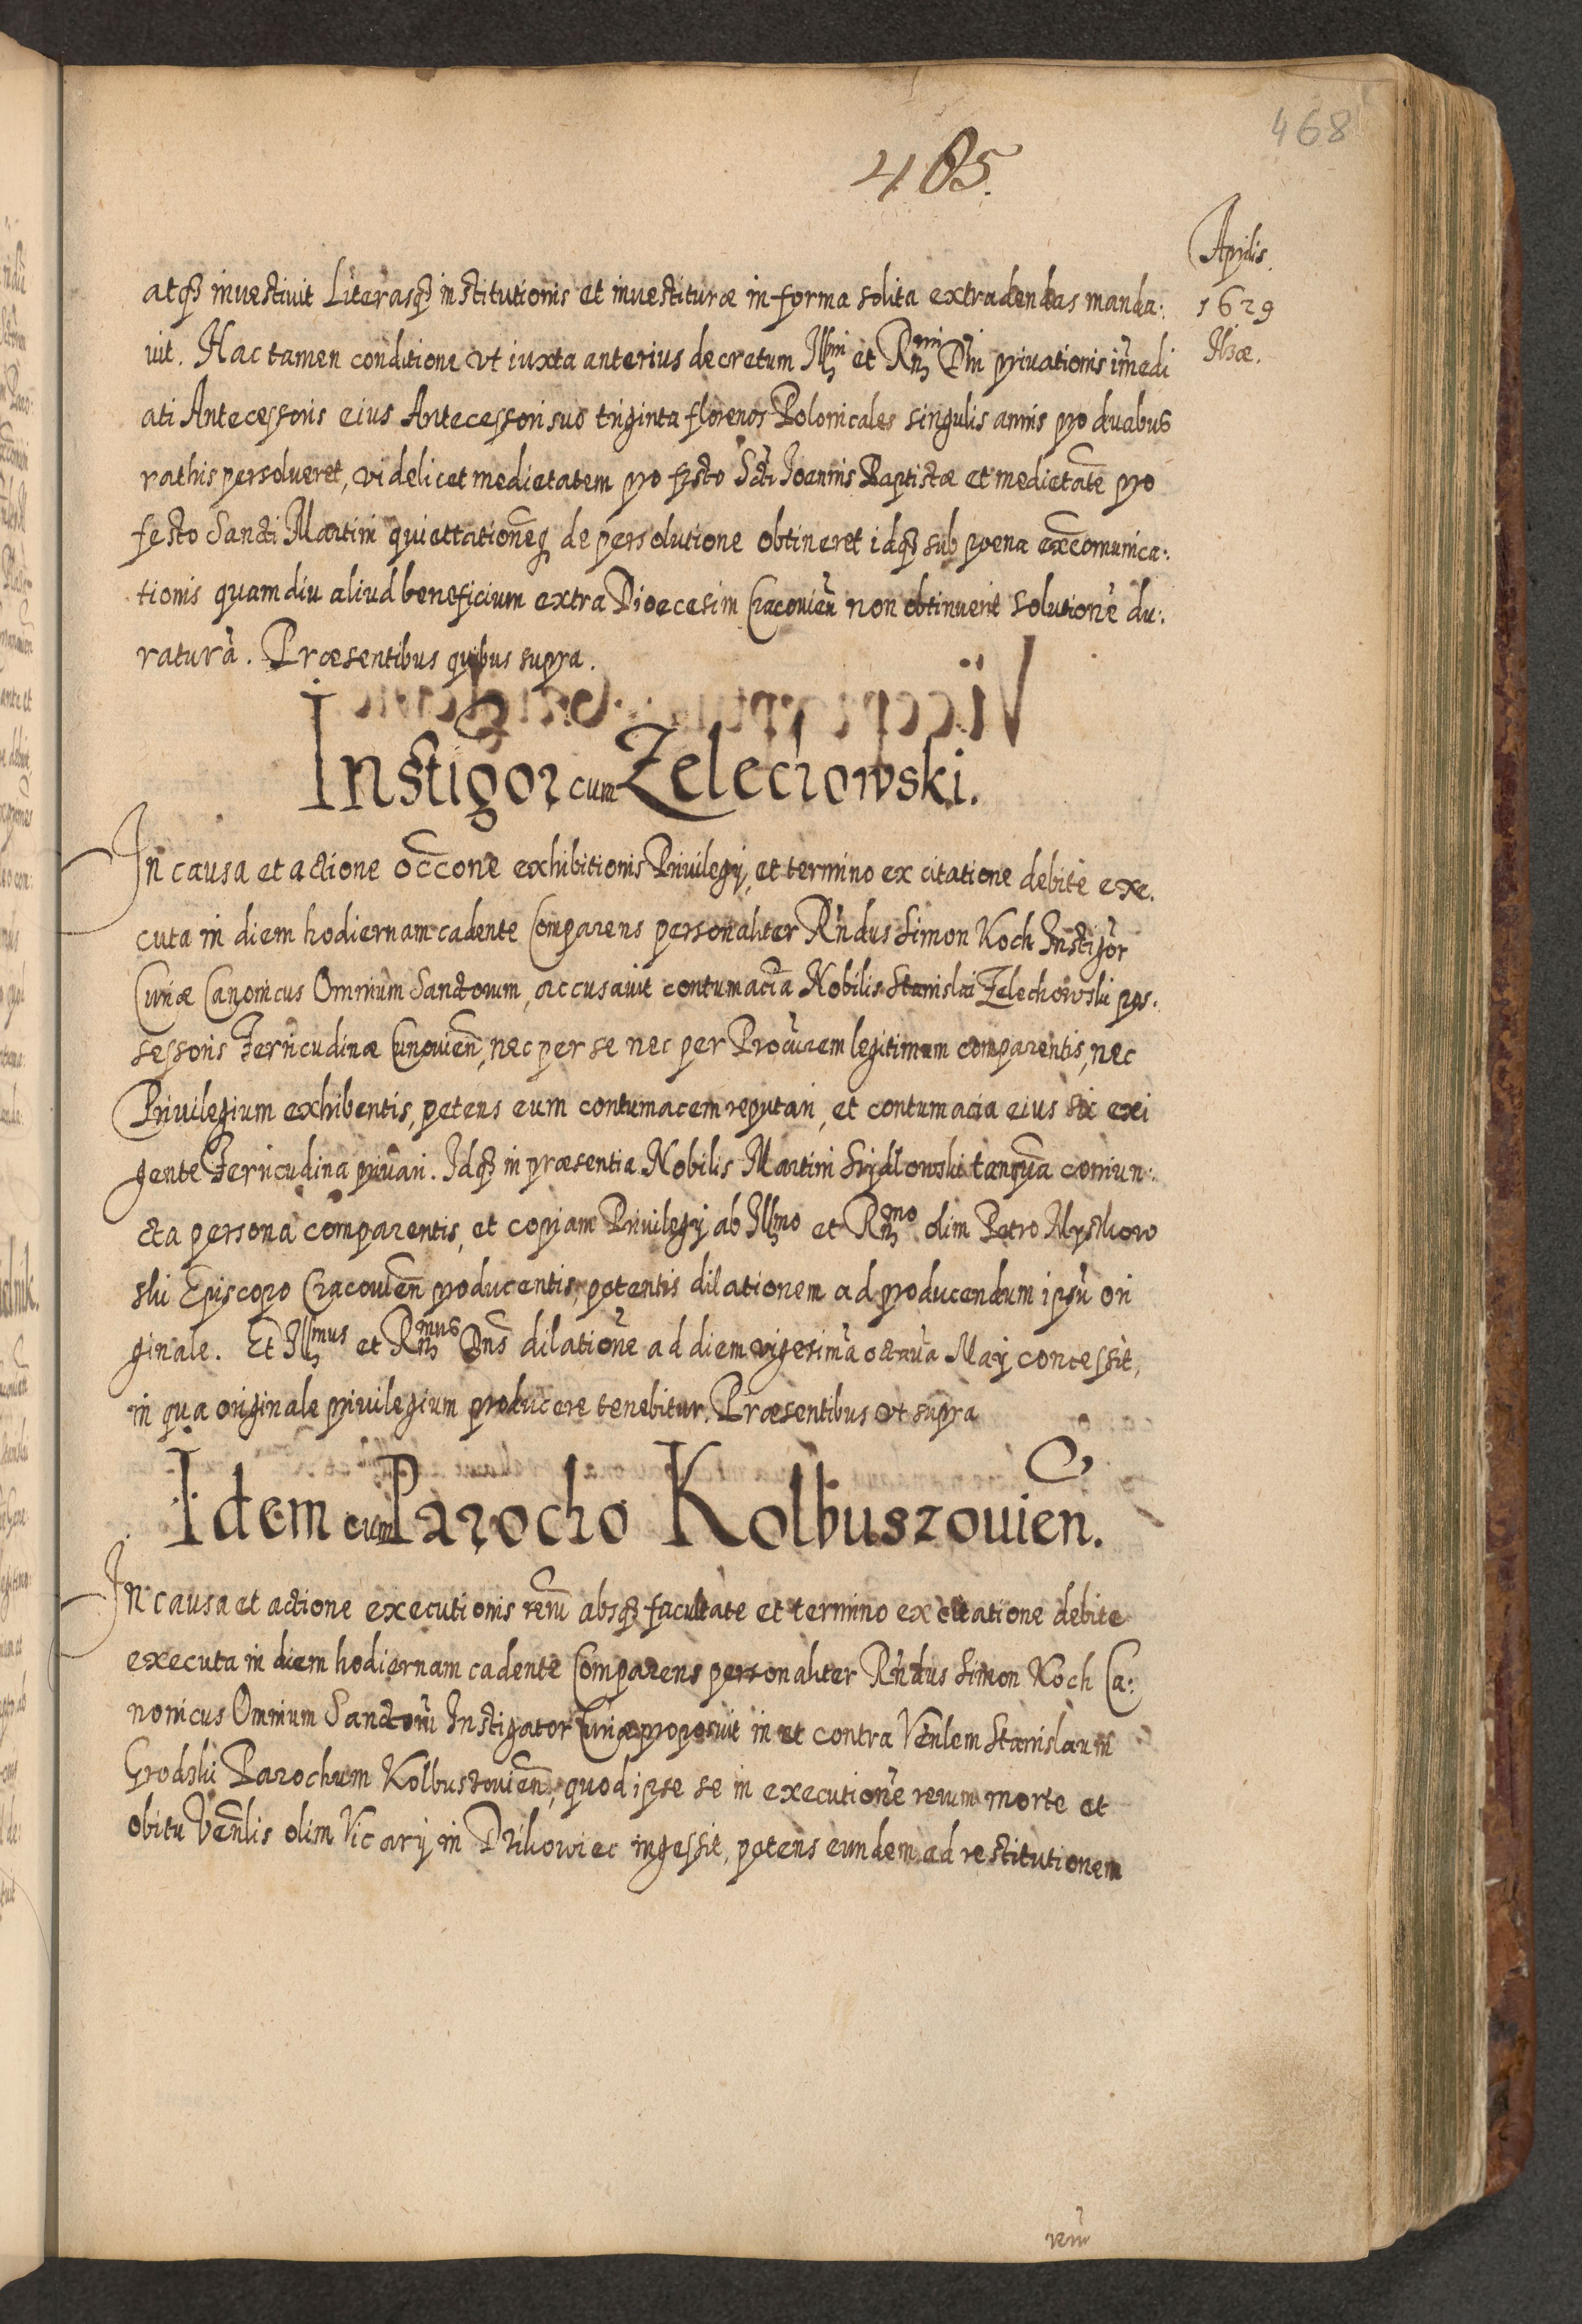 468
485.
Aprilis.
1629
Ilzæ.
atq₃ inuestiuit Literasq₃ institutionis et inuestituræ in forma solita extradendas manda:
uit. Hac tamen conditione vt iuxta anterius decretum Illmi et Rndmi Dni priuationis imedi
ati Antecessoris eius Antecessori suo triginta florenos Polonicales singulis annis pro duabus
rathis persolueret, videlicet medietatem pro festo Scti Ioannis Baptistæ et medietatē pro
festo Sancti Martini quiettationēq de persolutione obtineret idq₃ sub poena excōmunica:
tionis quamdiu aliud beneficium extra Dioecesim Cracouień non obtinuerit solutionē du:
raturā. Præsentibus quibus supra.
Instigor cum Zelechowski.
In causa et actione occōne exhibitionis Priuilegij, et termino ex citatione debitè exe.
cuta in diem hodiernam cadente Comparens personaliter Rndus Simon Koch Instigor
Curiæ Canonicus Omnium Sanctorum, accusauit contumaciā Nobilis Stanislai Zelechowski pos.
sessoris Cunouień, nec per se nec per Procurem legitimum comparentis, nec
Priuilegium exhibentis, petens eum contumacem reputari, et contumacia eius sic exi
gente priuari. Idq₃ in præsentia Nobilis Martini tanquā coniun:
cta persona comparentis, et copiam Priuilegij ab Illmo et Rndmo olim Petro Myszkow
ski Episcopo Cracouień producentis, petentis dilationem ad producendum ipsū ori
ginale. Et Illmus et Rndmus Dns dilationē ad diem vigesimā octauā Maij concessit,
in qua originale priuilegium producere tenebitur. Præsentibus vt supra
Idem cum Parocho Kolbuszouień.
In causa et actione executionis rerū absq₃ facultate et termino ex citatione debite
executa in diem hodiernam cadente Comparens personaliter Rndus Simon Koch Ca:
nonicus Omnium Sanctorū Instigator Curiæ proposuit in et contra Venlem Stanislaum
Grodski Parochum Kolbuszouień, quod ipse se in executionē rerum morte et
obitu Venlis olim Vicarij in Dzikowiec ingessit, petens eundem ad restitutionem
rerū